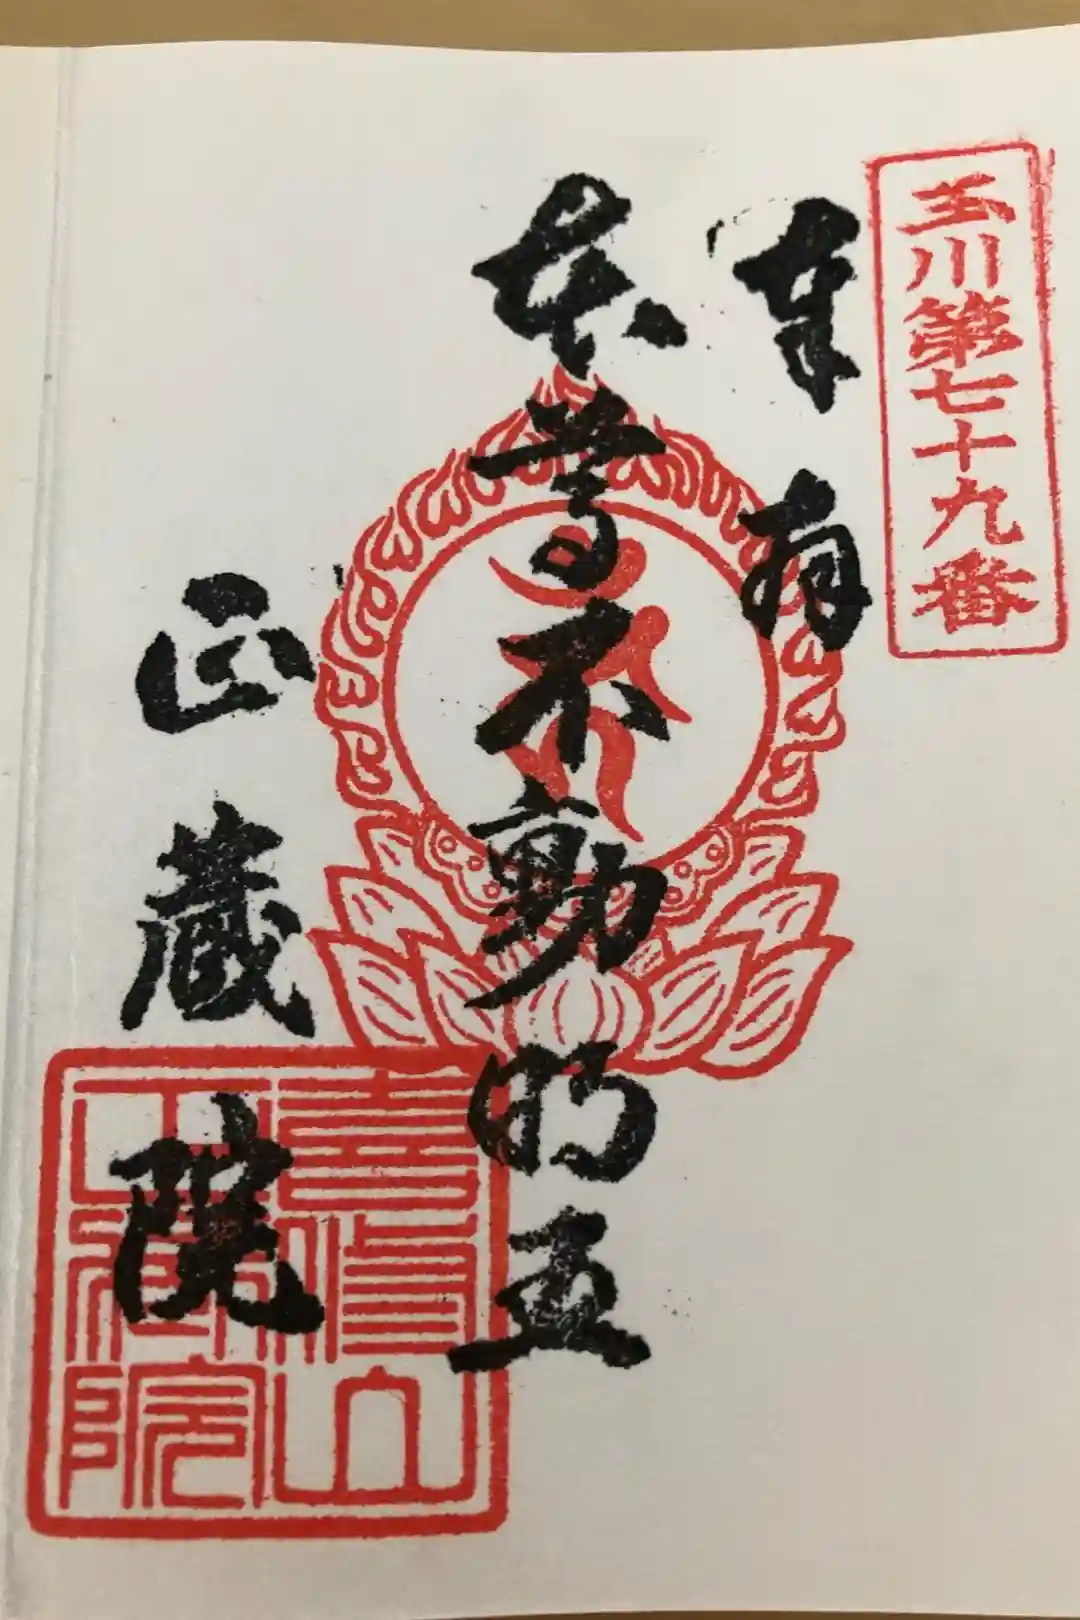 玉川第七十九番
奉拝
本尊不動明王
正蔵院
喜修山
正蔵院